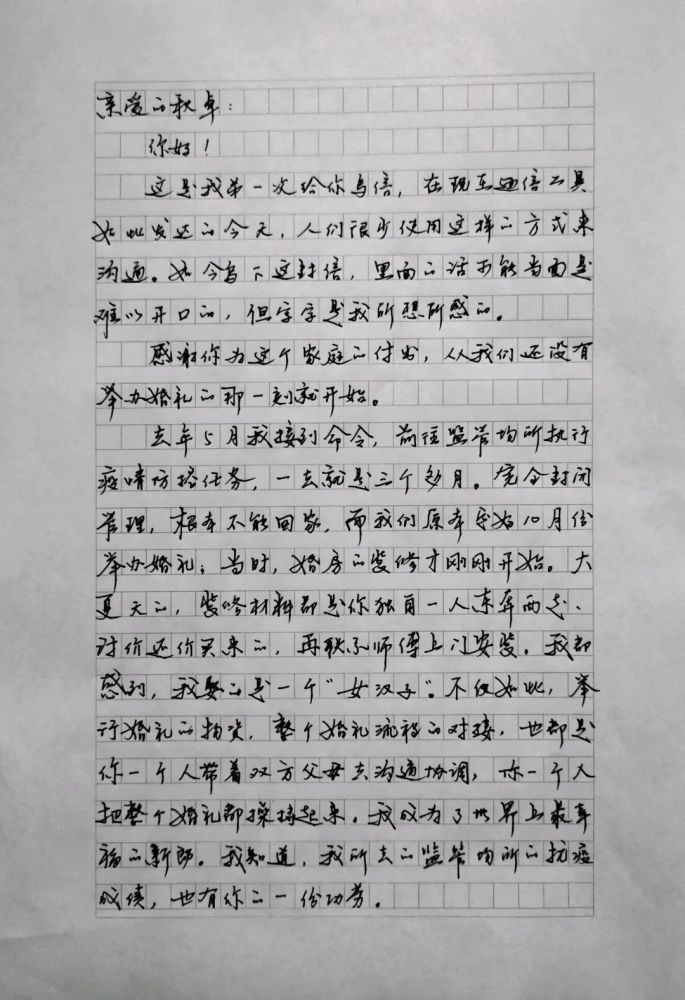 亲爱的秋卓：
你好！
这是我第一次给你写信，在现在通信工具
如此发达的今天，人们很少使用这样的方式来
沟通。如今写下这封信，里面的话可能当面是
难以开口的，但字字是我所想所感的。
感谢你为这个家庭的付出，从我们还没有
举办婚礼的那一刻就开始。
去年5月我接到命令，前往监管场所执行
疫情防控任务，一去就是三个多月。完全封闭
管理，根本不能回家，而我们原本定好10月份
举办婚礼；当时，婚房的装修才刚刚开始。大
夏天的，装修材料都是你独自一人东奔西走、
讨价还价买来的，再联系师傅上门安装。我都
感到，我娶的是一个“女汉子”。不仅如此，举
行婚礼的物资，整个婚礼流程的对接，也都是
你一个人带着双方父母去沟通协调，你一个人
把整个婚礼都操持起来。我成为了世界上最幸
福的新郎。我知道，我所去的监管场所的抗疫
成绩，也有你的一份功劳。